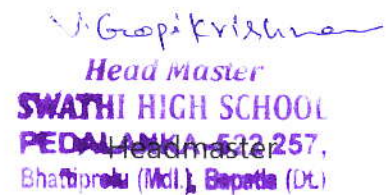 V. Gopikrishna
Head Master
SWATHI HIGH SCHOOL
PEDALANKA-522 257,
Headmaster
Bhattiprolu (Mdl.), Bapatla (Dt.)